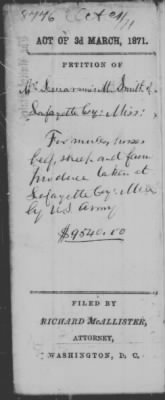 8446 Oct 21/71
ACT OF 3d MARCH, 1871.
PETITION OF
Smith of
Lafayette Coy: Miss:
For mules, horses
beef, sheep and farm
produce taken at
Lafayette Coy: Miss
by U.S. Army
$9540.00
FILED BY
RICHARD McALLISTER,
ATTORNEY,
WASHINGTON, D. C.